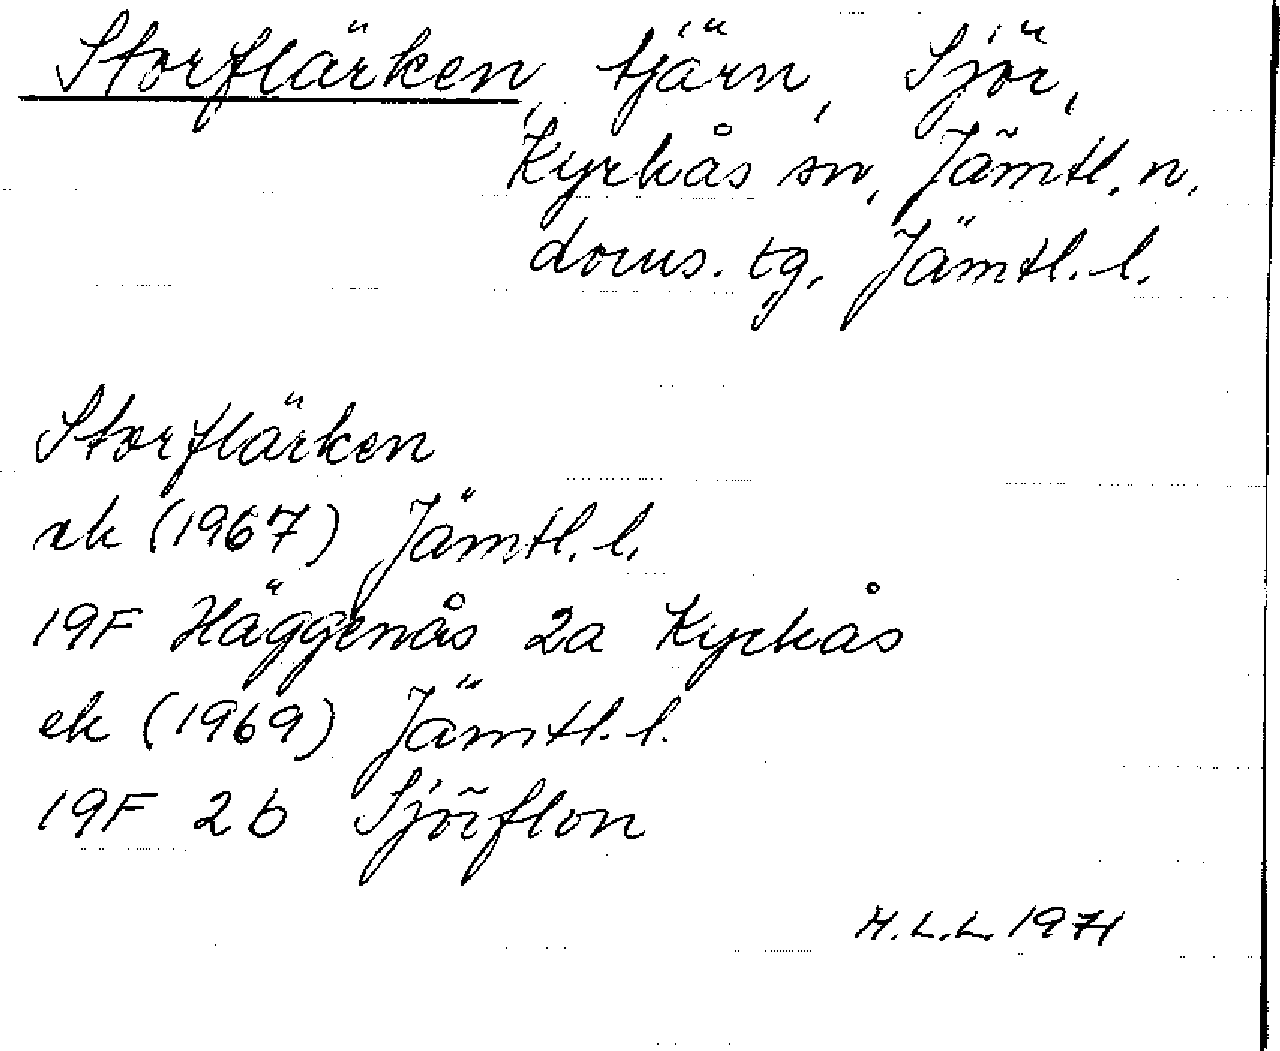 Storflärken, tjärn, Sjör,
Kyrkås sn, Jämtl. n.
doms. tg, Jämtl. l.
Storflärken
rk (1967) Jämtl. l.
19F Häggenås 2a Kyrkås
ek (1969) Jämtl. l.
19F 2b Sjörflon
H.L.L. 1971